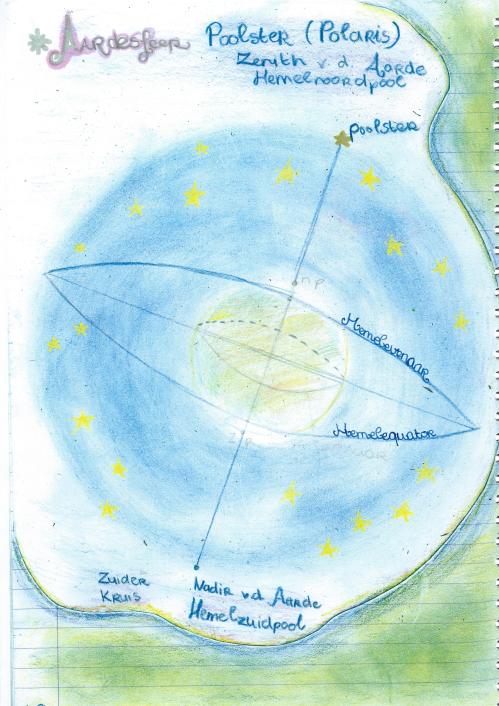 Aardesfeer
Poolster (Polaris)
Zenith v d Aarde
Hemelnoordpool
poolster
np
Hemelevenaar
Hemelequator
zp
Zuider
Kruis
Nadir v d Aarde
Hemelzuidpool